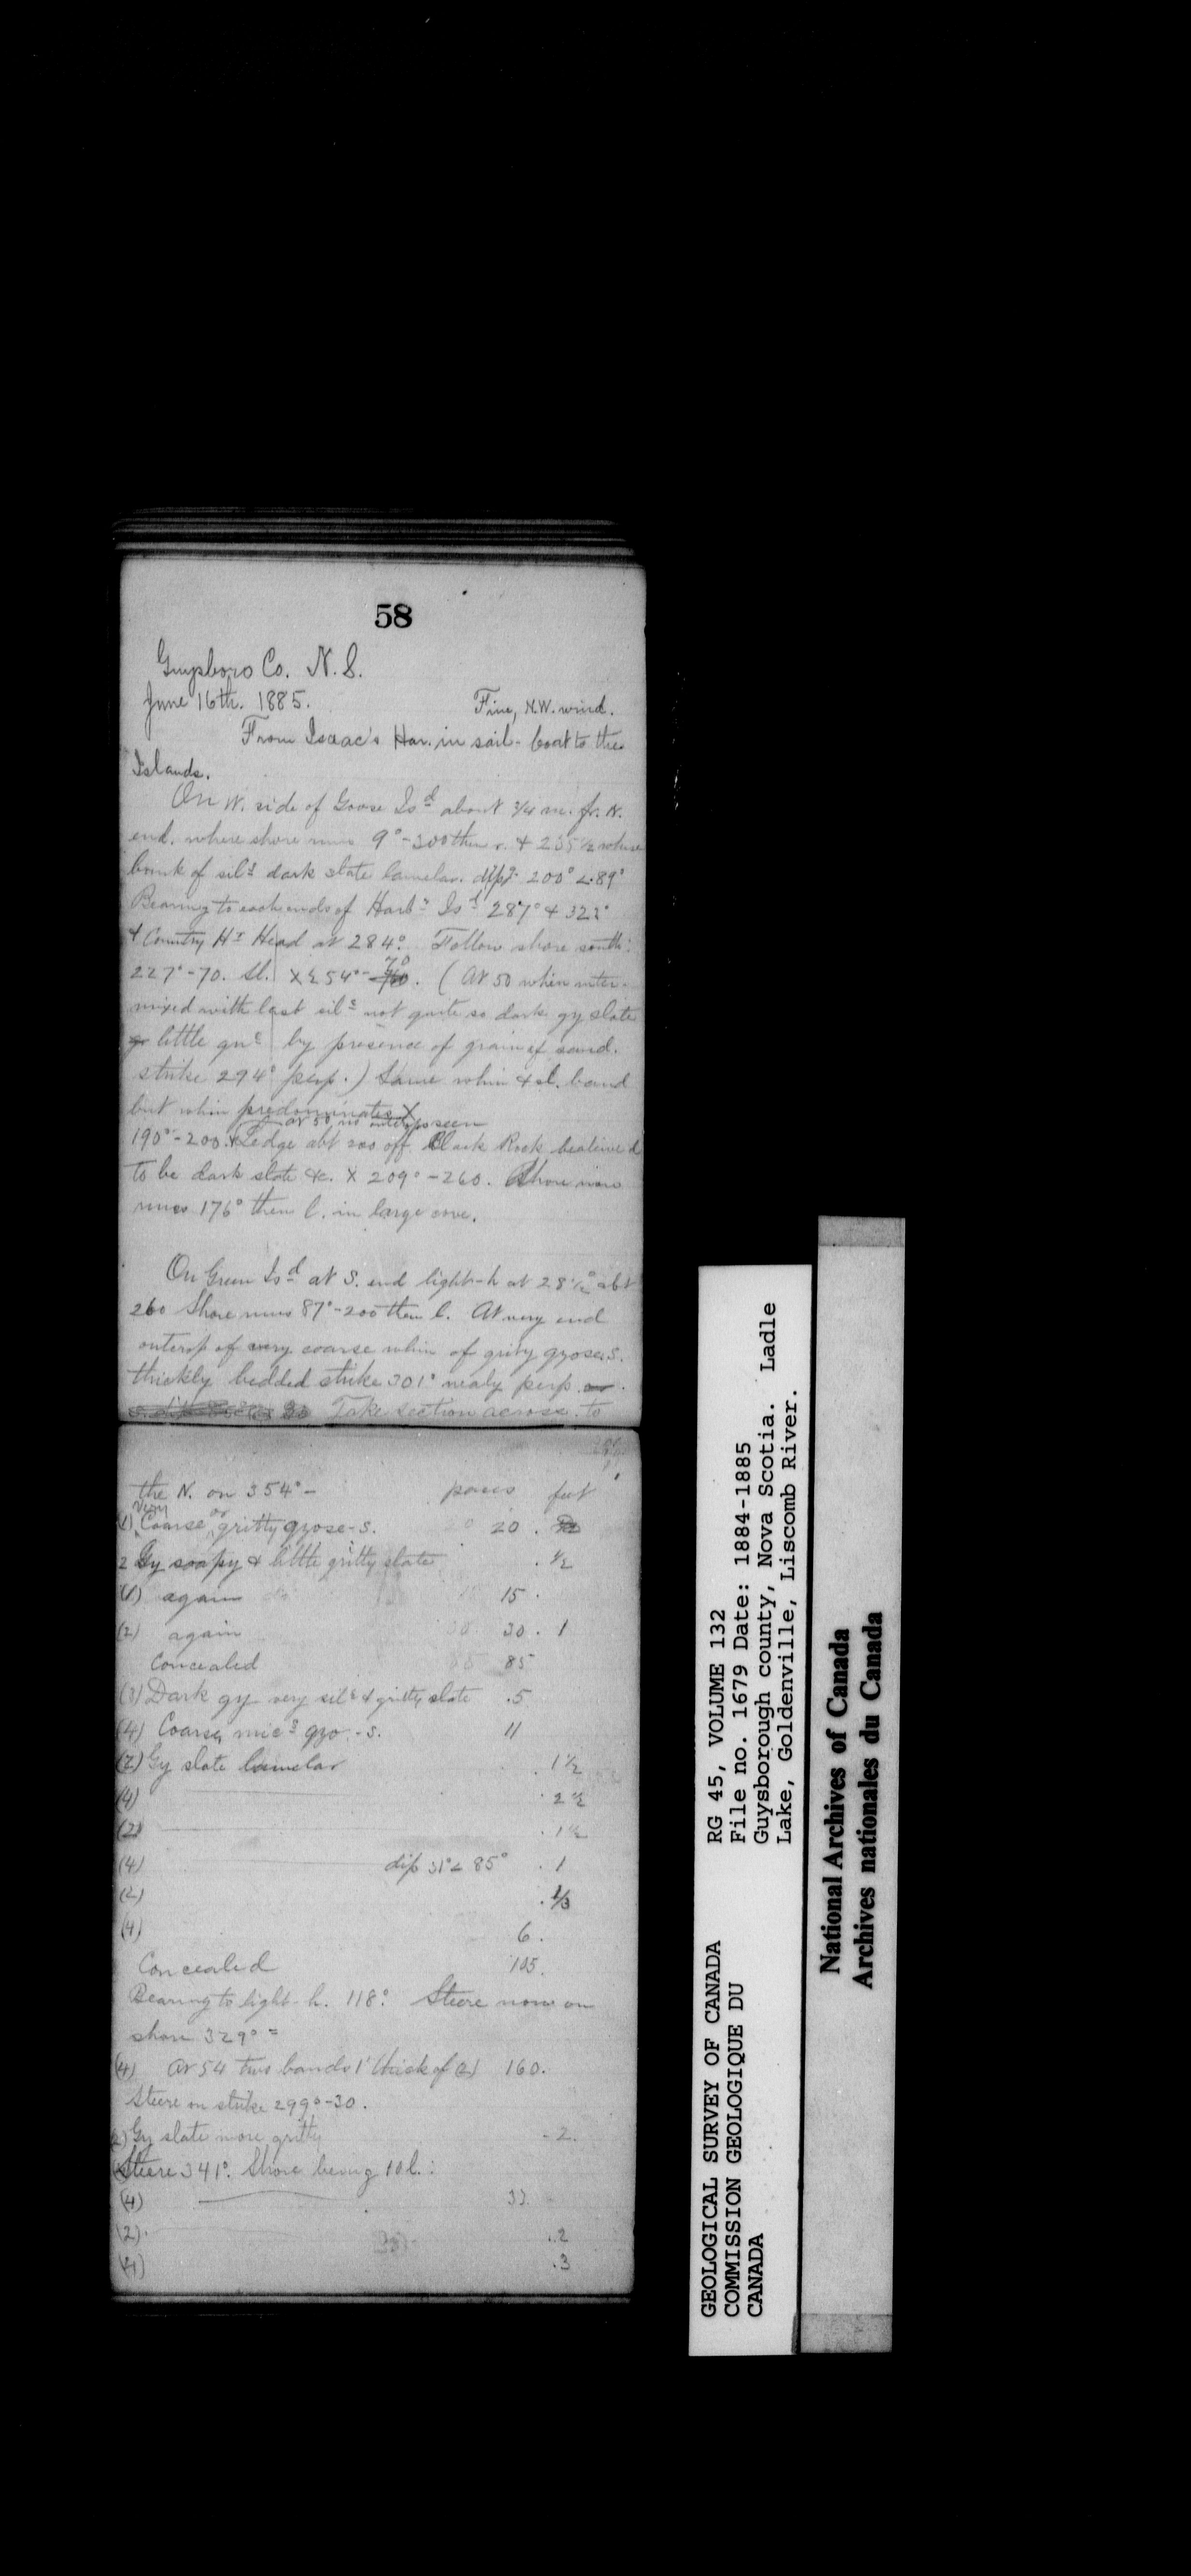 58
Guysboro Co. N. S.
June 16th. 1885.
Fine, N.W. wind.
From Isaac's Har. in sail-boat to the
Islands.
On W. side of Goose Isd about 3/4 m. fr. N.
end. where shore runs 9°-300 then r. & 235 1/2
of sils dark slate lamelar. dipg 200° ∠ 89°
Bearing to each ends of Harbr Isd 287° & 322°
& Country Hr Head at 284°. Follow shore south:
227°-70. Sl. X & 54°- 70. (At 50 whin inter-
mixed with last sils not quite so dark gy slate
little by presence of grain of sand.
strike 294° perp.) Same whin & sl. band
but whin predominates X
at 50 no outcrops seen
190°-200. X Ledge abt 200 off Black Rock
to be dark slate &c. X 209°-260. Shore now
runs 176° then l. in large cove.
On Green Isd at S. end light-h at 28 1/2° abt
260 Shore runs 87°-200 then l. At very end
outcrop of very coarse whin of grity qzose s.
thickly bedded strike 301° nealy perp.
Take section across to
the N. on 354°- paces feet
(1) Very Coarse or gritty qzose-s. 20.
2 Gy soapy & little gritty slate . 1/2
(1) again 15.
(2) again 30 . 1
Concealed 85
(3) Dark gy very sils & gritty slate .5
(4) Coarse mics qzo-s. 11
(2) Gy slate lamelar . 1 1/2
(4) . 2 1/2
(2) . 1 1/2
(4) dip 31° ∠ 85° . 1
(2) . 1/3
(4) 6.
Concealed 105.
Bearing to light-h. 118°. Steere now on
shore 329° =
(4) At 54 two bands 1' thick of (2) 160.
Steere on strike 299°-30.
(2) Gy slate more gritty - 2.
Steere 341°. Shore being 10 l.:
(4) 33.
(2). .2
(4) .3
GEOLOGICAL SURVEY OF CANADA
COMMISSION GEOLOGIQUE DU
CANADA
RG 45, VOLUME 132
File no. 1679 Date: 1884-1885
Guysborough county, Nova Scotia. Ladle
Lake, Goldenville, Liscomb River.
National Archives of Canada
Archives nationales du Canada